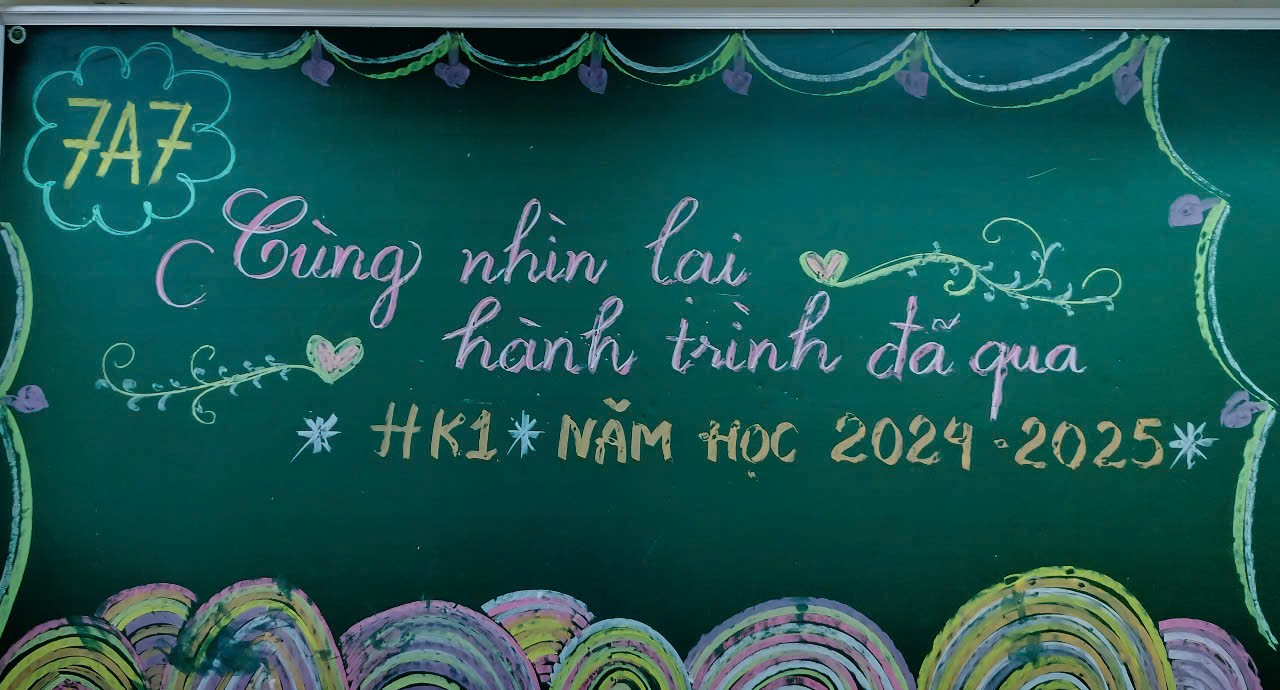 7A7
Cùng nhìn lại
hành trình đã qua
HK1 NĂM HỌC 2024-2025